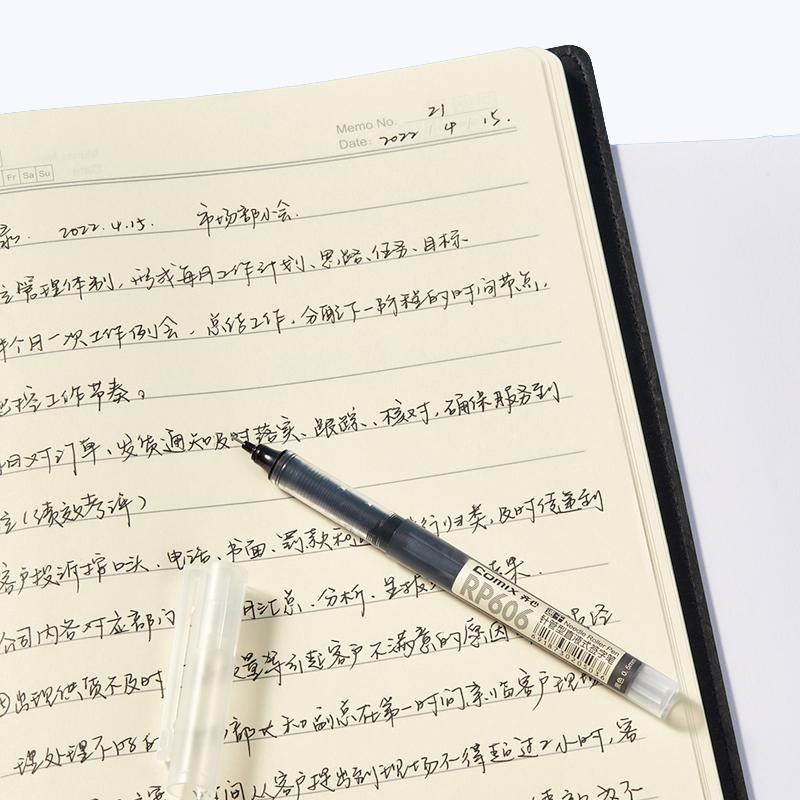 Memo No. 21
Date: 2022 / 4 / 15.
Fr Sa Su
2022.4.15. 市场部小会.
管理体制, 形成每月工作计划、思路、任务、目标
个月一次工作例会, 总结工作, 分配下一阶程的时间节点,
把控工作节奏。
日对订单、发货通知及时落实、跟踪、核对, 确保服务到
(绩效考评)
客户投诉按口头、电话、书面、罚款和 行归类, 及时传递到
公司内各对应部门 月汇总、分析、呈报 结果.
质量等引起客户不满意的原因
出现供货不及时
部长和副总在第一时间亲临客户现场
理处理不
时间从客户提出到现场不得超过2小时, 客
Comix 齐心
RP606
Needle Roller Pen
针管型直液式签字笔
黑色 0.5mm